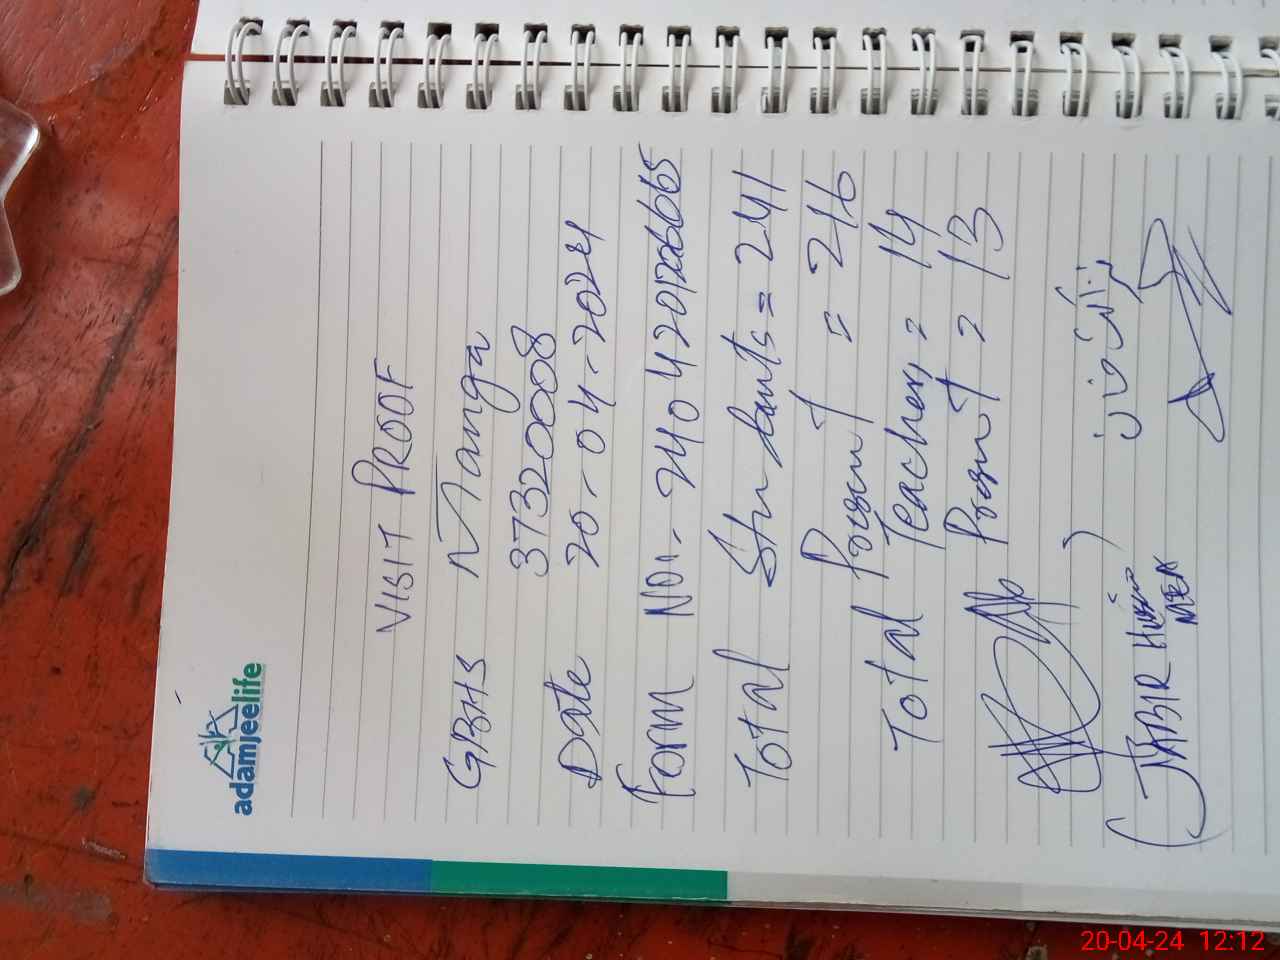 adamjeelife
VISIT PROOF
GBHS Manga
37320008
Date 20-04-2024
Form No:- 2404201226665
Total Students = 241
Present = 216
Total Teachers = 14
Present = 13
(JABIR Husain)
MEA
20-04-24 12:12